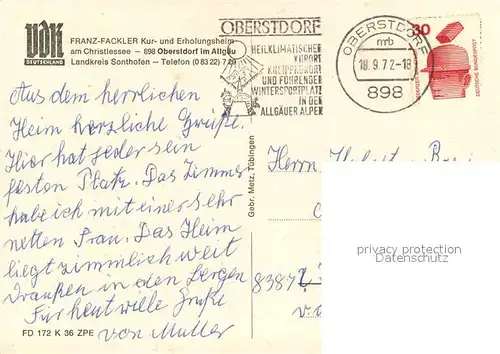 VdK
DEUTSCHLAND
FRANZ-FACKLER Kur- und Erholungsheim
am Christlessee — 898 Oberstdorf im Allgäu
Landkreis Sonthofen — Telefon (0 83 22)
OBERSTDORF
HEILKLIMATISCHER
KURORT
KNEIPPKURORT
UND FÜHRENDER
WINTERSPORTPLATZ
IN DEN
ALLGÄUER ALPEN
OBERSTDORF
mb
18.9.72-18
898
30
DEUTSCHE BUNDESPOST
Aus dem herrlichen
Heim herzliche Grüße.
Hier hat jeder sein
festen Platz. Das Zimmer
habe ich mit einer sehr
netten Frau. Das Heim
liegt zimmlich weit
draußen in den Bergen
Für heut viele Grüße
von Mutter
Gebr. Metz, Tübingen
Herrn
8387
privacy protection
Datenschutz
FD 172 K 36 ZPE